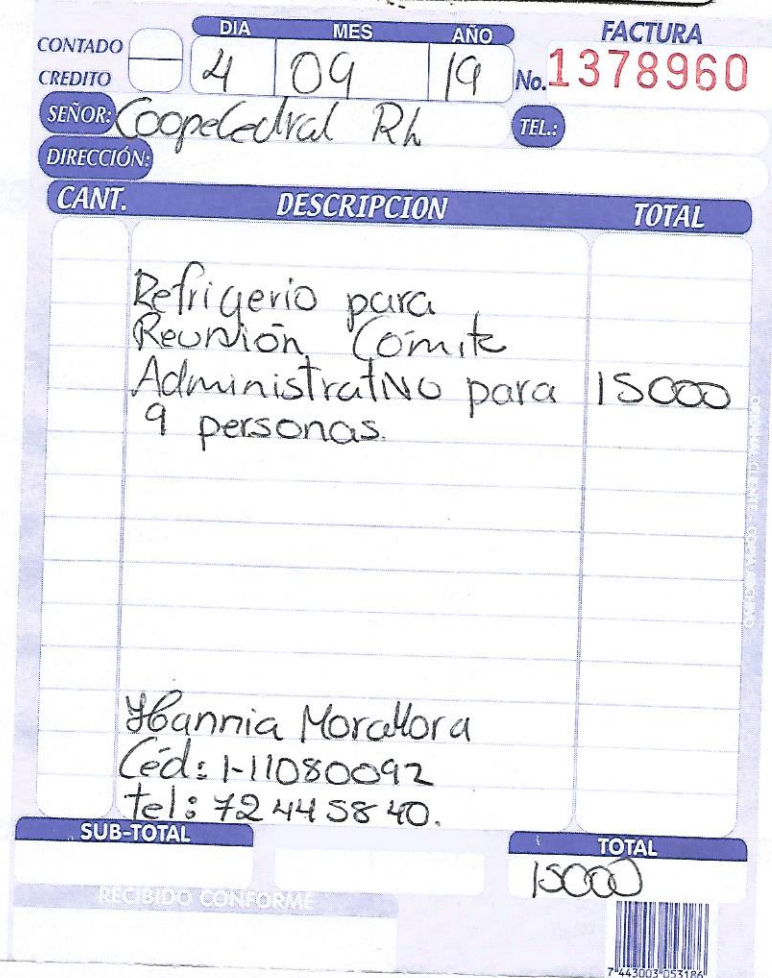 DIA MES AÑO FACTURA
CONTADO
CREDITO 4 09 19 No. 1378960
SEÑOR: Coopecedral Rh TEL.:
DIRECCIÓN:
CANT. DESCRIPCION TOTAL
Refrigerio para
Reunión Cómite
Administrativo para 15000
9 personas.
Hannia Mora Mora
Céd: 1-11080092
tel: 72445840.
SUB-TOTAL TOTAL
15000
RECIBIDO CONFORME
7 443003 053186